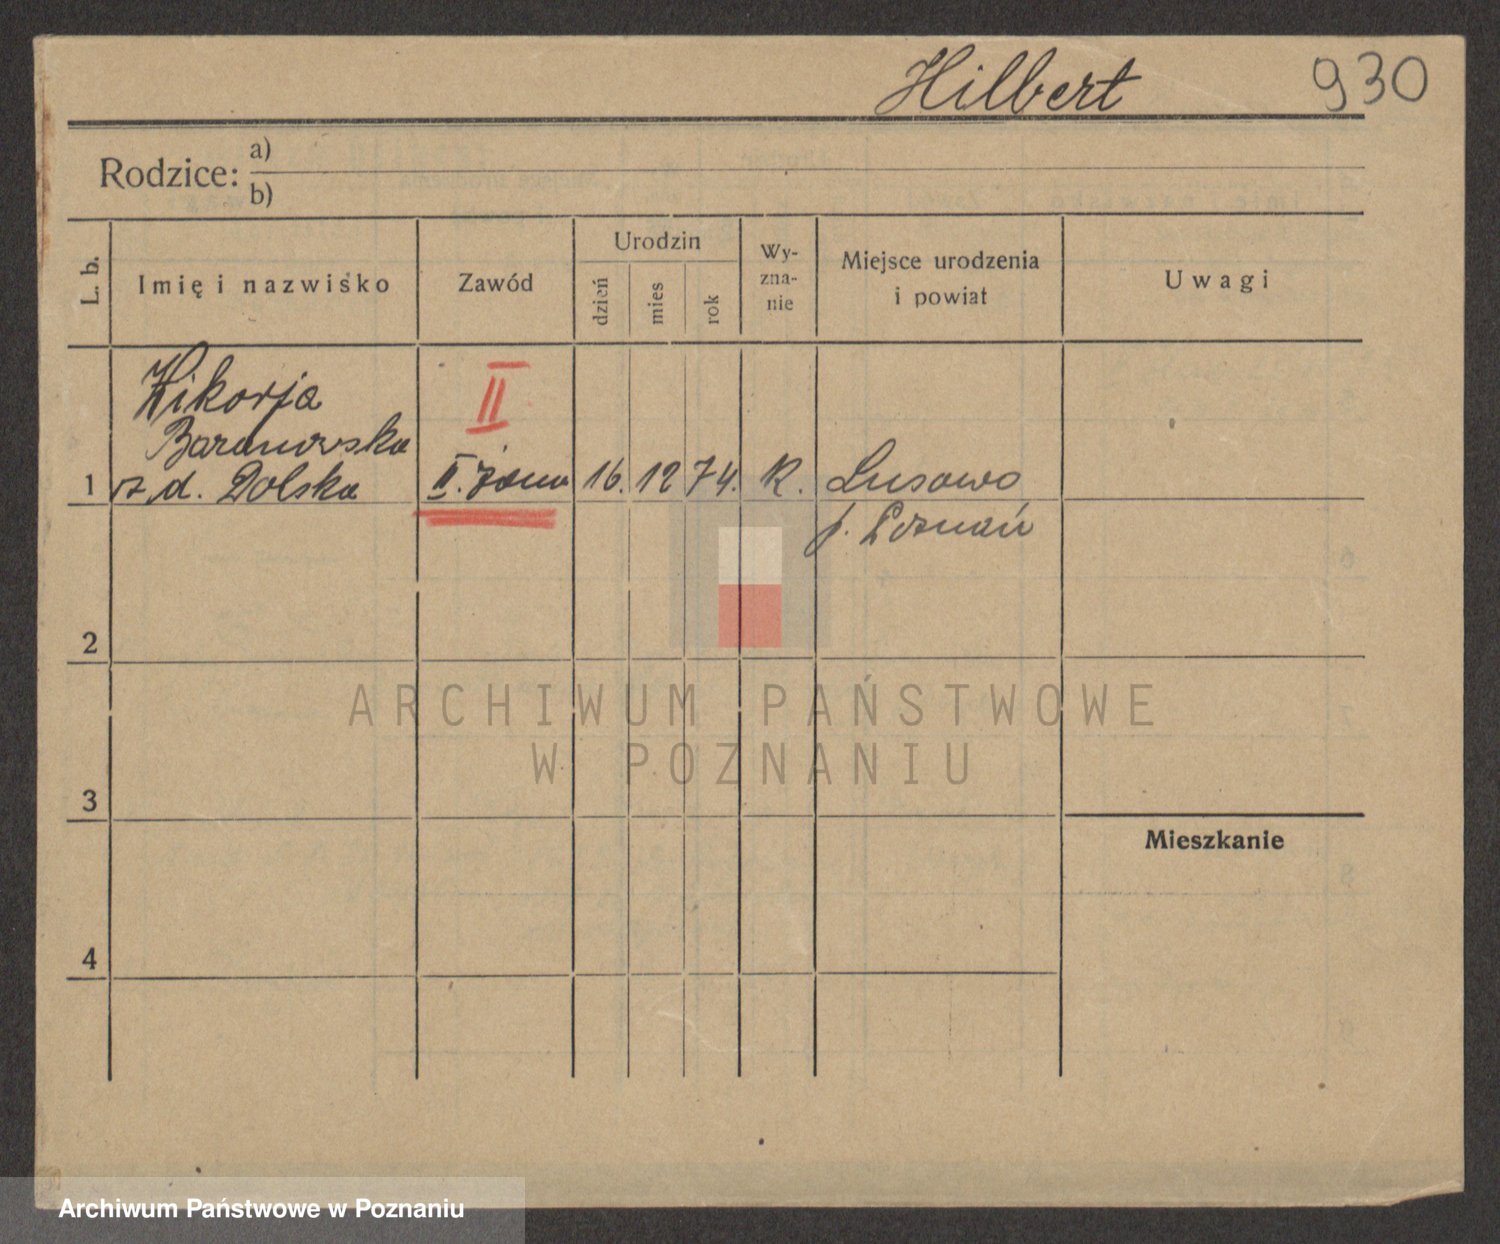 Hilbert 930
Rodzice: a)
b)
L. b. Imię i nazwisko Zawód Urodzin dzień mies rok Wy-
zna-
nie Miejsce urodzenia
i powiat Uwagi
Wikorja II
Baranowska
1 z d. Dolska II. żona 16. 12 74. R. Lusowo
p. Poznań
2
ARCHIWUM PAŃSTWOWE
W POZNANIU
3
Mieszkanie
4
Archiwum Państwowe w Poznaniu